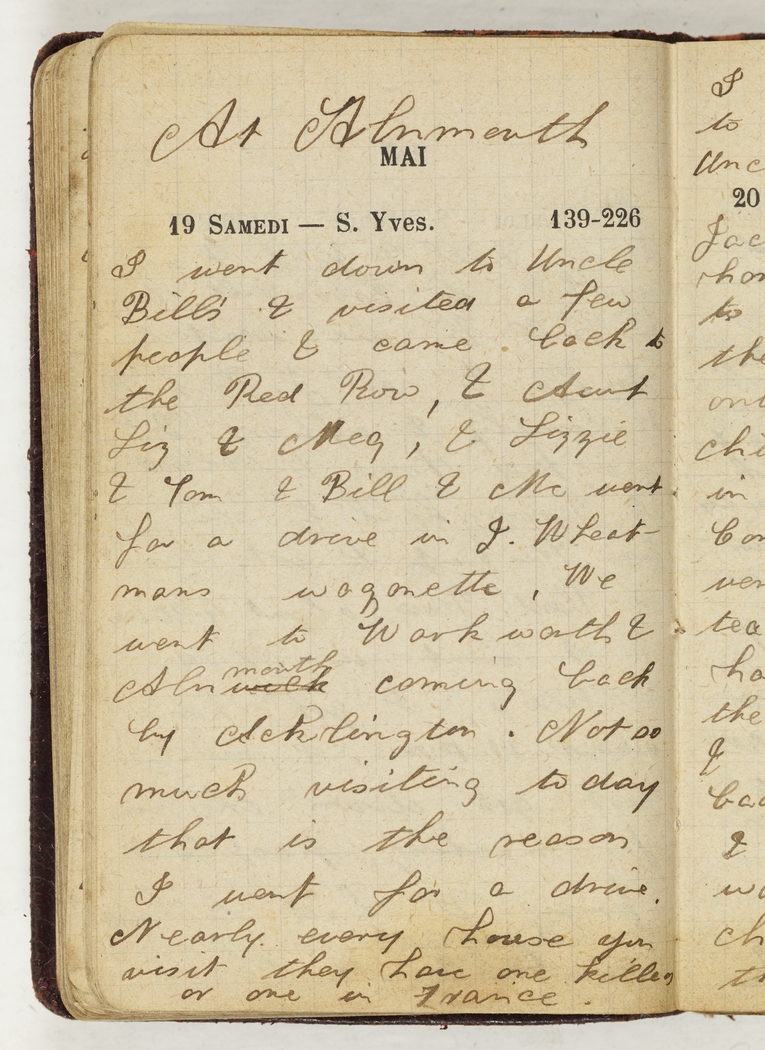 At Alnmouth
MAI
19 SAMEDI — S. Yves. 139-226
I went down to Uncle
Bill's & visited a few
people & came back to
the Red Row, & Aunt
Liz & Meg, & Lizzie
& Tom & Bill & Me went
for a drive in J. Wheat-
mans wagonette, We
went to Warkworth &
Alnwick mouth coming back
by Acklington. Not so
much visiting today
that is the reason
I went for a drive.
Nearly every house you
visit they have one killed
or one in France.
I
to
Unc
20
Jac
to
the
chi
in
ver
tea
ha
the
I
bac
&
wa
ch
th